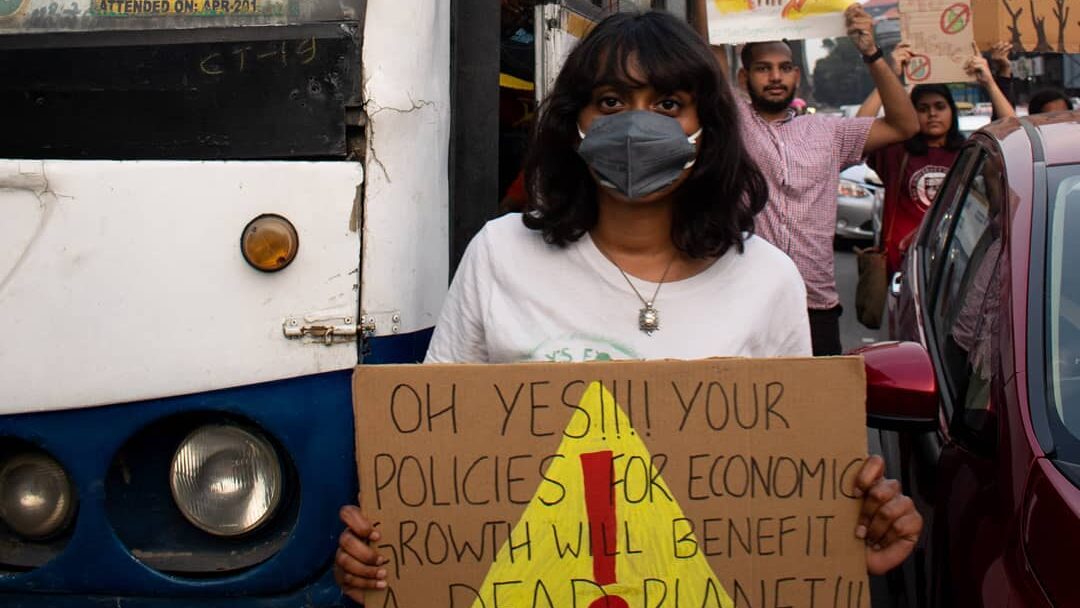 ATTENDED ON: APR-201
CT-19
OH YES!!!! YOUR
POLICIES FOR ECONOMIC
GROWTH WILL BENEFIT
A DEAD PLANET!!!